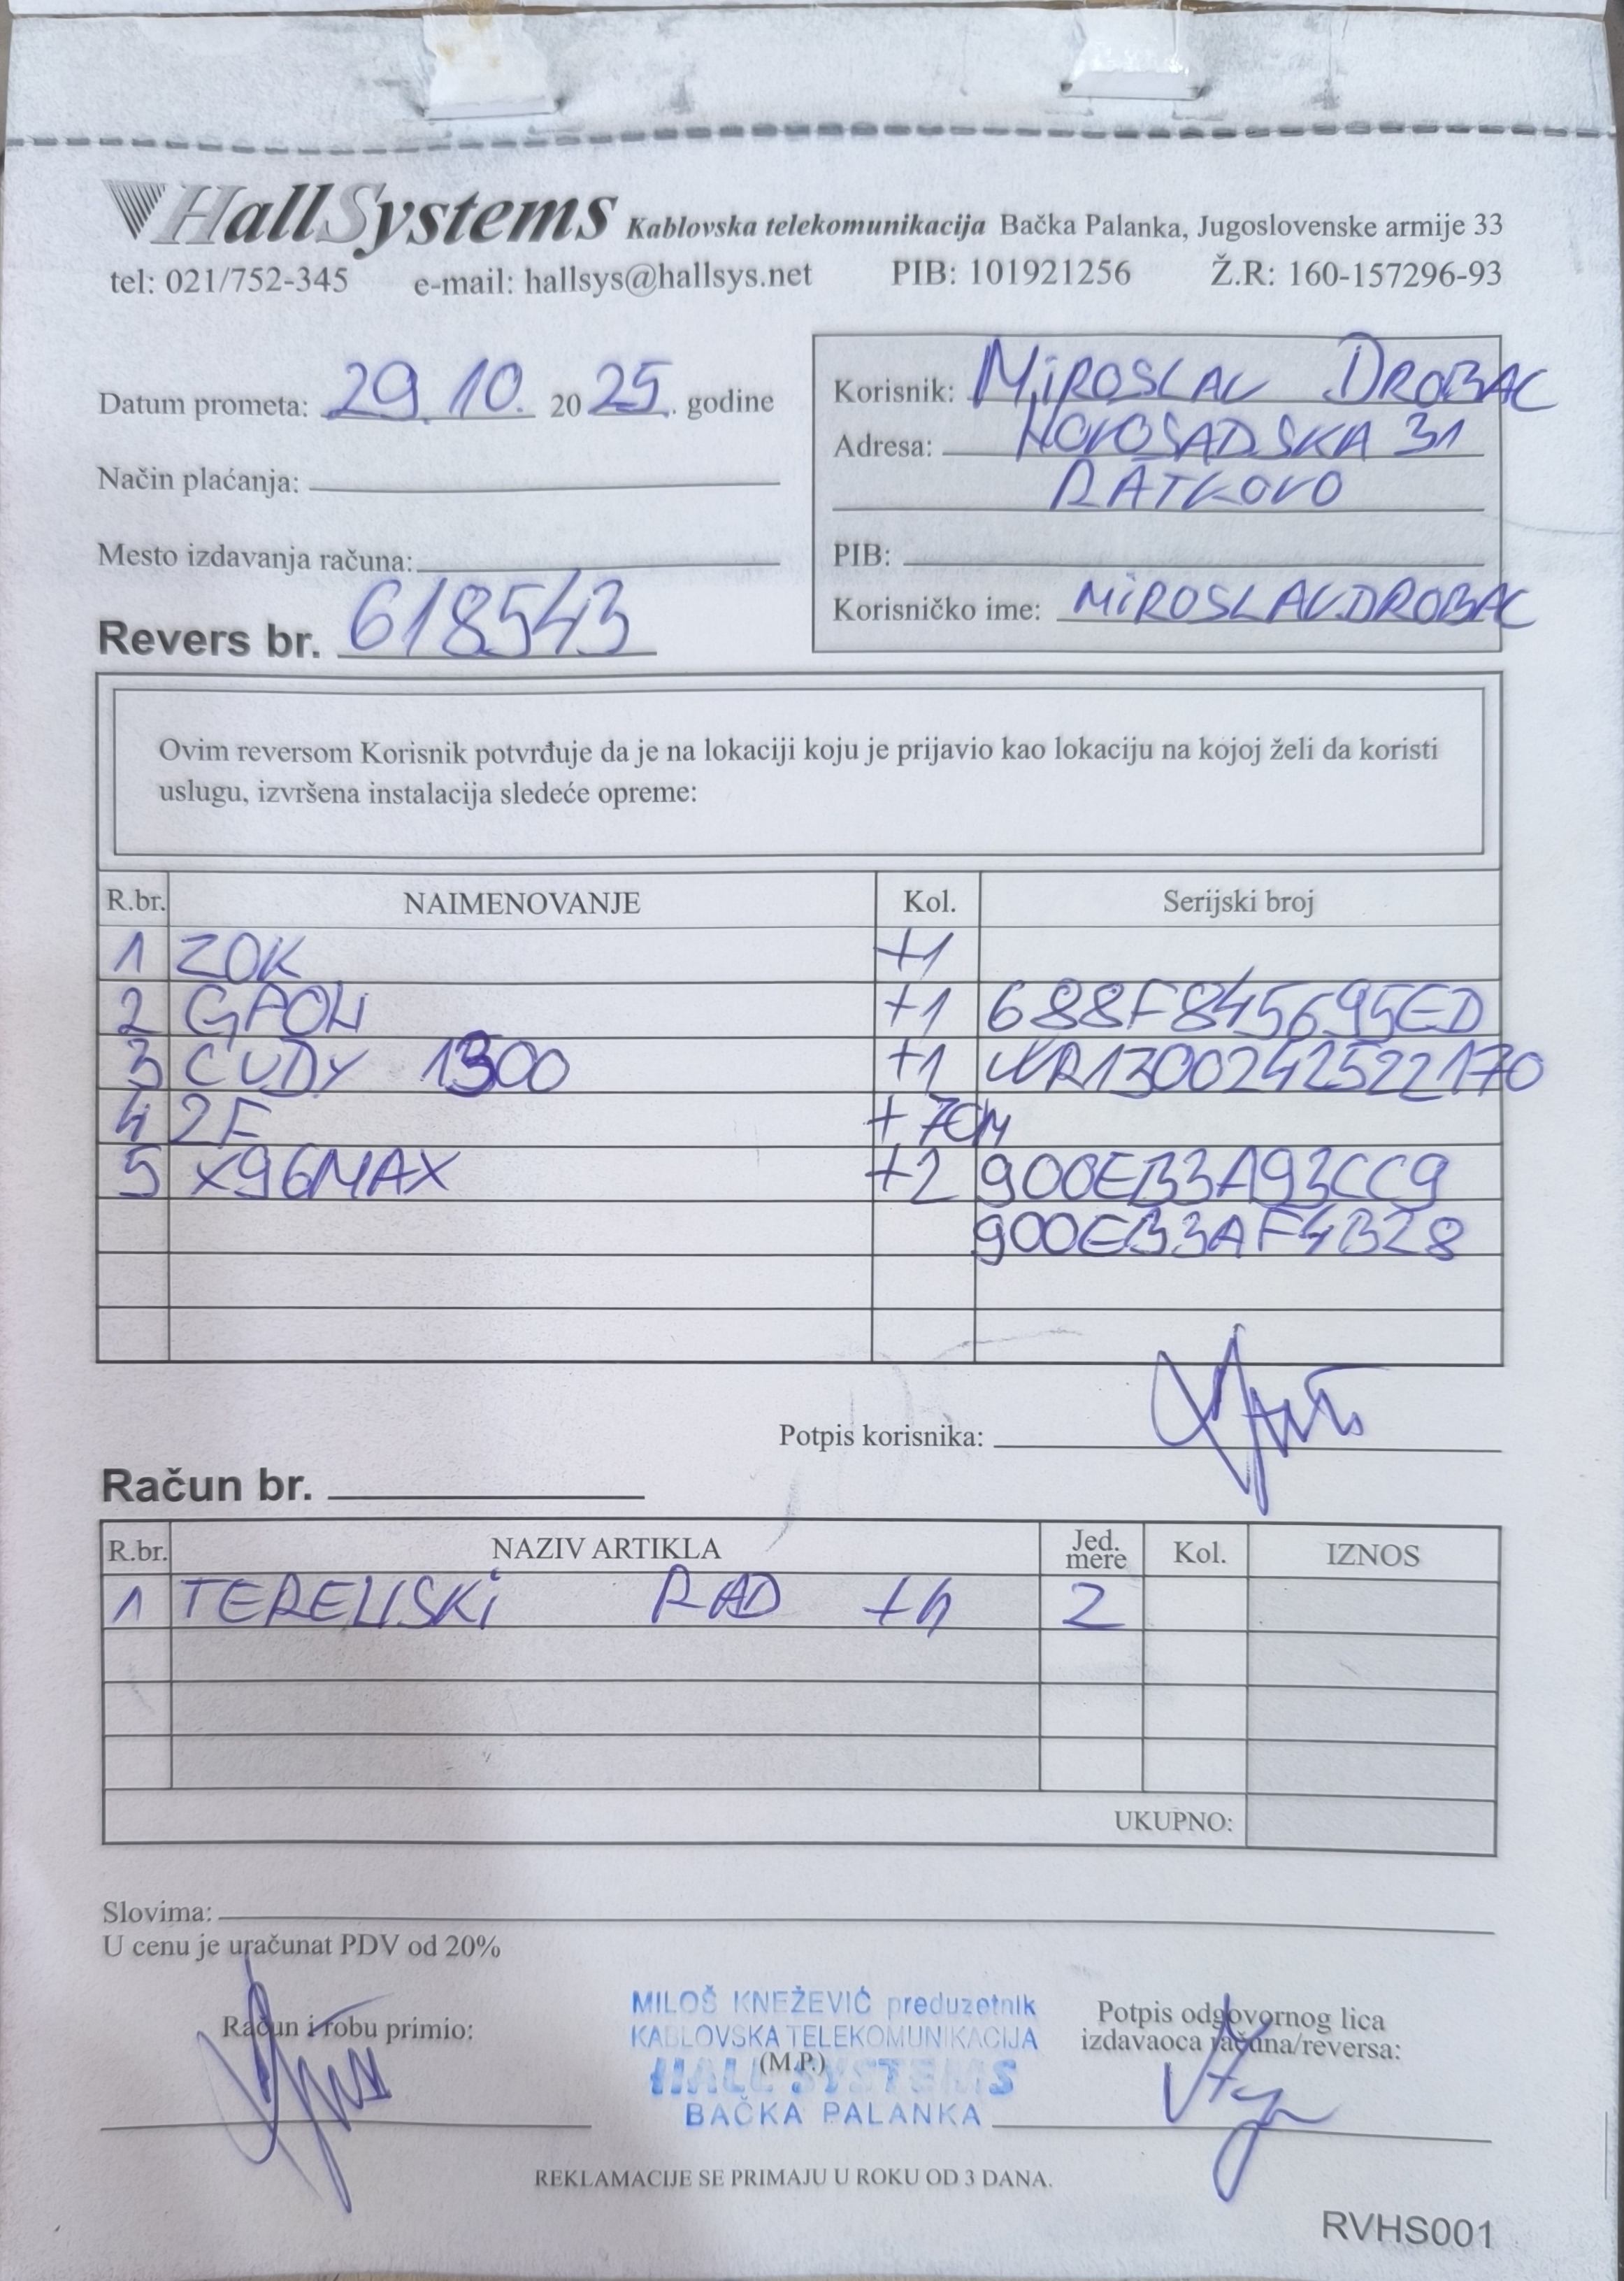 HallSystems Kablovska telekomunikacija Bačka Palanka, Jugoslovenske armije 33
tel: 021/752-345 e-mail: hallsys@hallsys.net PIB: 101921256 Ž.R: 160-157296-93
Datum prometa: 29.10. 2025. godine
Način plaćanja:
Mesto izdavanja računa:
Revers br. 618543
Korisnik: MiROSLAV DROBAC
Adresa: NOVOSADSKA 31
RATKOVO
PIB:
Korisničko ime: MiROSLAV.DROBAC
Ovim reversom Korisnik potvrđuje da je na lokaciji koju je prijavio kao lokaciju na kojoj želi da koristi
uslugu, izvršena instalacija sledeće opreme:
R.br. NAIMENOVANJE Kol. Serijski broj
1 ZOK +1
2 GPON +1 688F845695ED
3 CUDY 1300 +1 WR1300242522170
4 2F + 70M
5 X96MAX +2 900EB3A93CC9
900EB3AF4B28
Potpis korisnika:
Račun br.
R.br. NAZIV ARTIKLA Jed. mere Kol. IZNOS
1 TERENSKi RAD +h 2
UKUPNO:
Slovima:
U cenu je uračunat PDV od 20%
Račun i robu primio:
MILOŠ KNEŽEVIĆ preduzetnik
KABLOVSKA TELEKOMUNIKACIJA
(M.P.)
HALL SYSTEMS
BAČKA PALANKA
Potpis odgovornog lica
izdavaoca računa/reversa:
REKLAMACIJE SE PRIMAJU U ROKU OD 3 DANA.
RVHS001